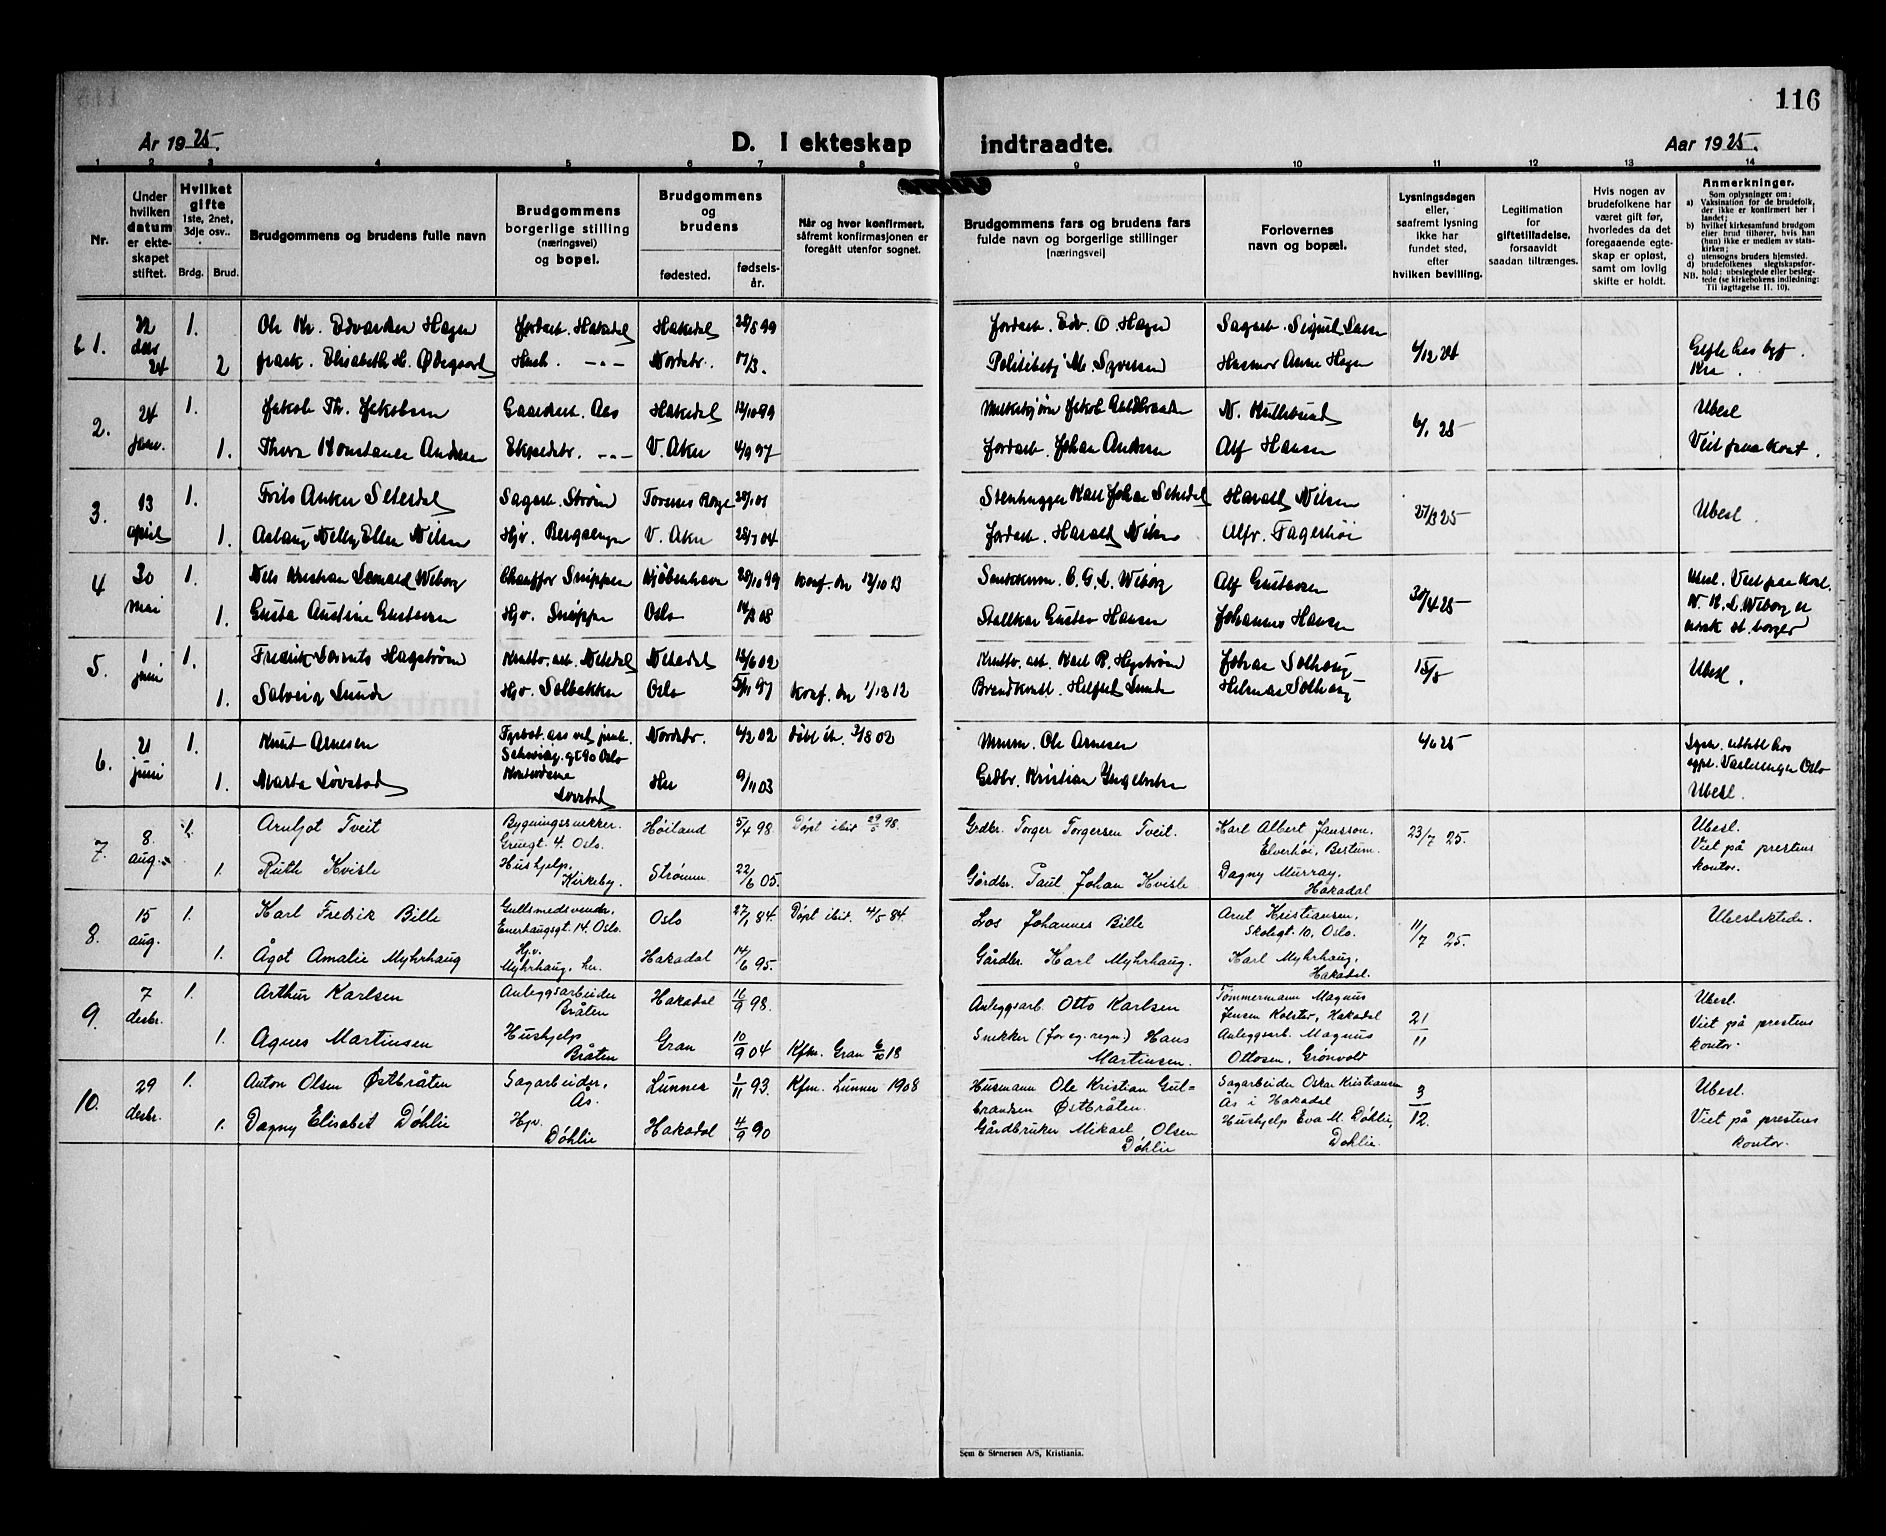 116
År 1925.
D. I ekteskap indtraadte.
Aar 1925.
1 2 3 4 5 6 7 8 9 10 11 12 13 14
Nr.
Under hvilken datum er ekteskapet stiftet.
Hvilket gifte 1ste, 2net, 3dje osv..
Brdg. Brud.
Brudgommens og brudens fulle navn
Brudgommens borgerlige stilling (næringsvei) og bopel.
Brudgommens og brudens
fødested.
fødselsår.
Når og hvor konfirmert, såfremt konfirmasjonen er foregått utenfor sognet.
Brudgommens fars og brudens fars fulde navn og borgerlige stillinger (næringsvei)
Forlovernes navn og bopæl.
Lysningsdagen eller, saafremt lysning ikke har fundet sted, efter hvilken bevilling.
Legitimation for giftetilladelse, forsaavidt saadan tiltrænges.
Hvis nogen av brudefolkene har været gift før, hvorledes da det foregaaende egteskap er opløst, samt om lovlig skifte er holdt.
Anmerkninger.
Som oplysninger om:
a) Vaksination for de brudefolk, der ikke er konfirmert her i landet;
b) hvilket kirkesamfund brudgom eller brud tilhører, hvis han (hun) ikke er medlem av statskirken;
c) utensogns bruders hjemsted.
d) brudefolkenes slegtskapsforhold: ubeslegtede eller beslegtede (se kirkebokens indledning: Til Iagttagelse II. 10).
NB.
1. 22 1. Ole Kr. Edvardsen Hagen Jordarb. Hakedal Hakedal 99 Jordarb. Edv. O. Hagen Sagarb. Sigurd
24 2 frask. Elisabeth H. Ødegaard Nordstr. Politibetj M. Syversen Husmor Anna Hagen 12 24
2. 24 1. Jakob Th. Jakobsen Gaardarb. Aas Hakedal 99 N. Kullebund 25 Ubesl
Janr. 1. Thora Konstanse Andersen V. Aker 97 Jordarb. Johan Andersen Alf Hansen Viet paa kont.
3. 13 1. Frits Anker Setesdal Sagarb. Strøm Torsnes Borge 01 Stenhugger Karl Johan Setesdal Harald Nilsen 27/3 25 Ubesl.
april 1. Aslaug Nelly Ellen Nilsen Hjv. V. Aker 04 Jordarb. Harald Nilsen Alfr. Fagerhøi
4 30 1. Nils Kristian Leonard Wiborg Chauffør Snippen Kjøbenhavn 99 Konf. den 12/10 13 C. G. L. Wiborg Alf Gustavsen 30/4 25 Ubesl. Viet paa kont.
mai 1. Gusta Austine Gustavsen Hjv. Snippen Oslo 08 Gustav Hansen Johannes Hansen N. K. L. Wiborg er norsk st. borger
5. 1 1. Fredrik Laurits Hagstrøm Krutto. arb. Nitedal Nitedal 02 Krutto. arb. Karl R. Hagstrøm Johan Solhaug 15/5 Ubesl.
juni 1. Solveig Lunde Hjv. Solbakken Oslo 97 Konf. den 12 Lunde Solhaug
6. 21 1. Knut Arnesen Fyrbøt. ass ved jernb. Schweig. gt 90 Oslo Nordstr. 4/2 02 døbt ib. 3/8 02 Ole Arnesen 4/6 25
juni 1. Marta Løvstad Løvstad Her 9/11 03 Grdbr. Kristian Ubesl.
7. 8. 1. Arnljot Tveit Bygningssnekker. Grüngt. 4. Oslo. Høiland 5/4 98 Døpt ibid 29/5 98. Grdbr. Torger Torgersen Tveit. Karl Albert Jansson, Elverhøi, Bærum. 23/7 25. Ubesl.
aug. 1. Ruth Kvisle Hushjelp, Kirkeby. Strømm 22/6 05. Gårdbr. Paul Johan Kvisle Dagny Murray, Hakadal Viet på prestens kontor.
8. 15 1. Karl Fredrik Bille Gullsmedsvender, Enerhaugsgt. 14. Oslo. Oslo 27/1 84 Døpt ibid. 4/5 84. Los Johannes Bille Arnt Kristiansen, Skolegt. 10, Oslo. 11/7 25. Ubeslektede.
aug. 1. Ågot Amalie Myhrhaug Hjv. Myhrhaug, hr. Hakadal 14/6 95. Gårdbr. Karl Myhrhaug. Karl Myhrhaug, Hakadal.
9. 7 1. Arthur Karlsen Anleggsarbeider Bråten Hakadal 16/9 98. Anleggsarb. Otto Karlsen Tømmermann Magnus Jensen Kolstø, Hakadal 21/11 Ubesl.
desbr. 1. Agnes Martinsen Hushjelp Bråten Gran 10/9 04 Kfm. Gran 6/10 18 Snekker (for eg. regn.) Hans Martinsen. Anleggsarb. Magnus Ottosen, Grønvold Viet på prestens kontor.
10. 29 1. Anton Olsen Østbråten Sagarbeider, Ås. Lunner 1/11 93. Kfm. Lunner 1908 Husmann Ole Kristian Gulbrandsen Østbråten. Sagarbeider Oskar Kristiansen Ås i Hakadal 3/12. Ubesl.
desbr. 1. Dagny Elisabet Døhlie Hjv. Døhlie Hakadal 4/9 90 Gårdbruker Mikael Olsen Døhlie Hushjelp Eva M. Døhlie, Døhlie. Viet på prestens kontor.
Sem & Stenersen A/S, Kristiania.